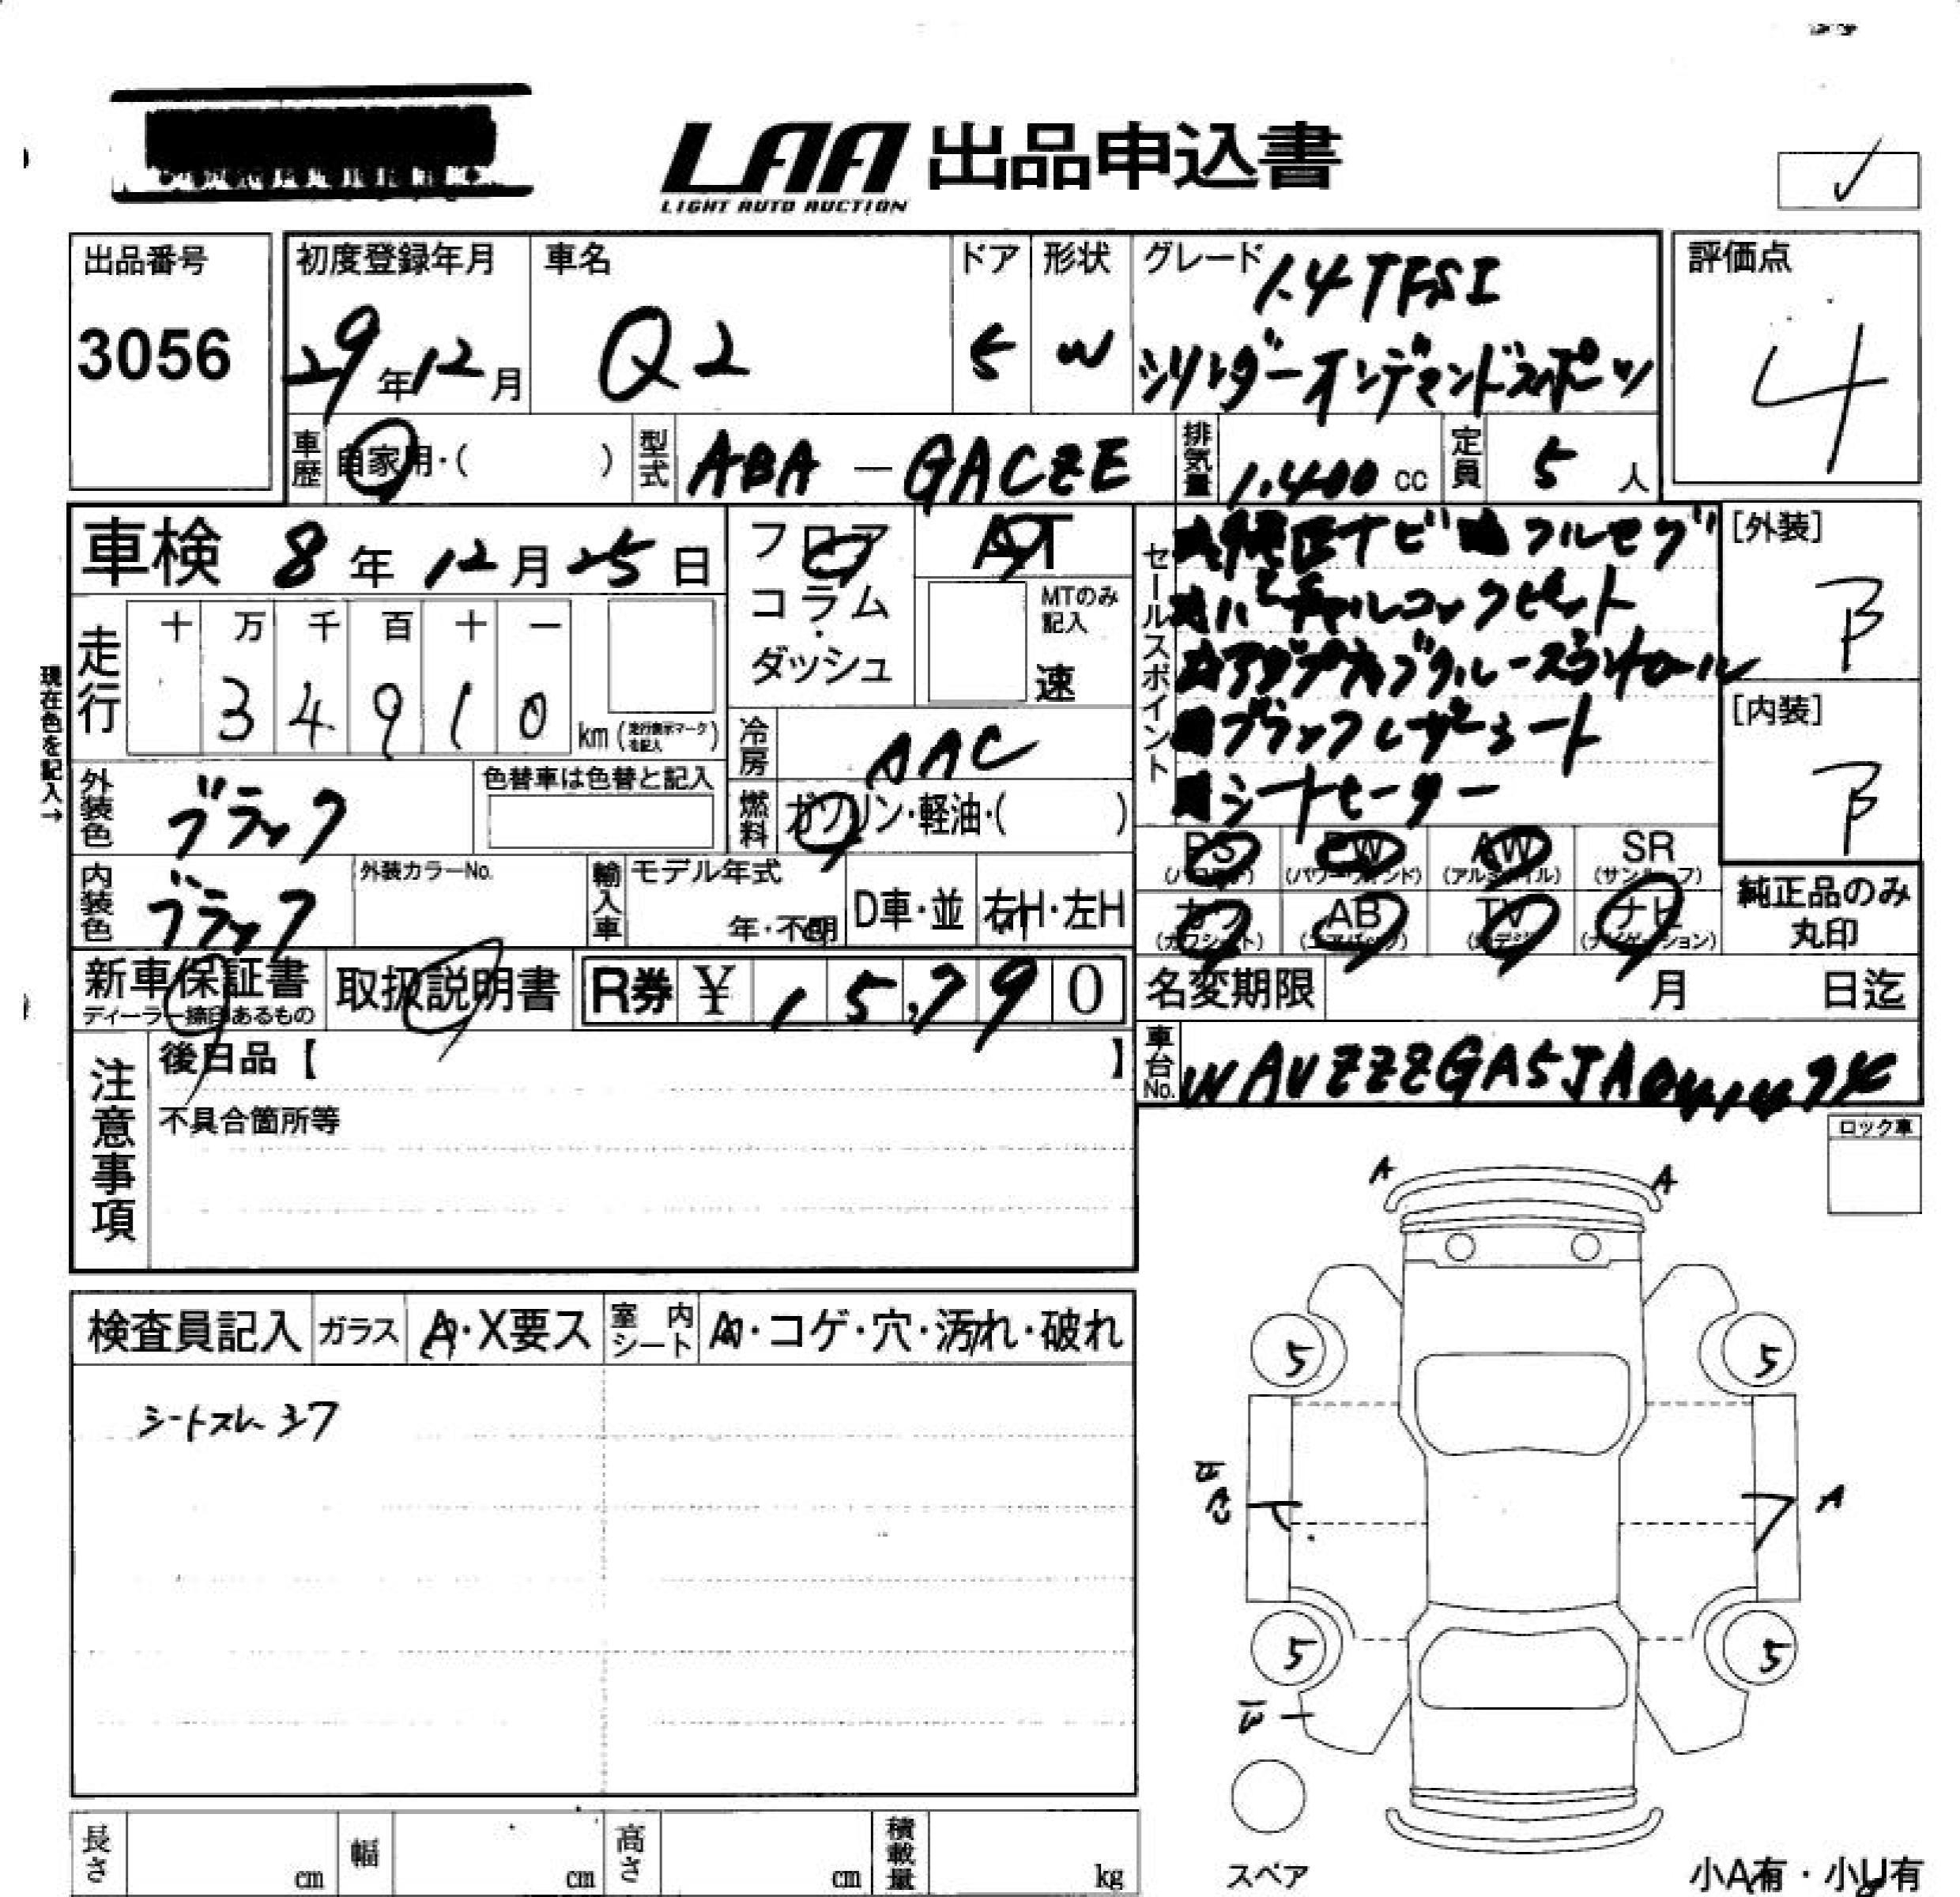 LAA 出品申込書
LIGHT AUTO AUCTION
✓
出品番号
3056
初度登録年月
29年12月
車名
Q2
ドア
5
形状
W
グレード
1.4TFSI
シリンダーオンデマンドスポーツ
評価点
4
車歴 自家用・( )
型式 ABA-GACZE
排気量 1.400 cc
定員 5 人
車検 8年12月25日
フロア
コラム・
ダッシュ
AT
MTのみ
記入
速
セールスポイント
純正ナビ フルセグ
バーチャルコックピット
アダプティブクルーズコントロール
ブラックレザーシート
シートヒーター
[外装]
B
[内装]
B
現在色を記入→
走行
十 万 千 百 十 一
3 4 9 1 0 km(走行表示マークを記入)
冷房 AAC
外装色 ブラック
色替車は色替と記入
燃料 ガソリン・軽油・( )
内装色 ブラック
外装カラーNo.
輸入車
モデル年式
年・不明
D車・並
右H・左H
PS PW AW SR
(パワステ) (パワーウインド) (アルミホイル) (サンルーフ)
カワ AB TV ナビ
(カワシート) (エアバック) (地デジ) (ナビゲーション)
純正品のみ
丸印
新車保証書
ディーラー捺印あるもの
取扱説明書
R券 ¥ 15,790
名変期限 月 日迄
車台No. WAUZZZGA5JA
注意事項
後日品【 】
不具合箇所等
ロック車
検査員記入
ガラス A・X要ス
室内シート
・コゲ・穴・汚れ・破れ
シートスレ シワ
A A
5 5
A
5 5
スペア
小A有・小U有
長さ cm
幅 cm
高さ cm
積載量 kg